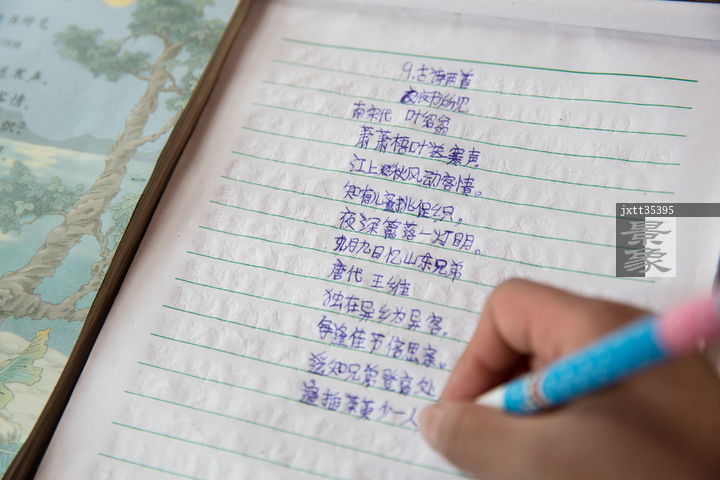 9.古诗两首
夜书所见
南宋代 叶绍翁
萧萧梧叶送寒声
江上秋风动客情。
知有儿童挑促织,
夜深篱落一灯明。
九月九日忆山东兄弟
唐代 王维
独在异乡为异客,
每逢佳节倍思亲。
遥知兄弟登高处
遍插茱萸少一人
寒声,
客情。
jxtt35395
景象